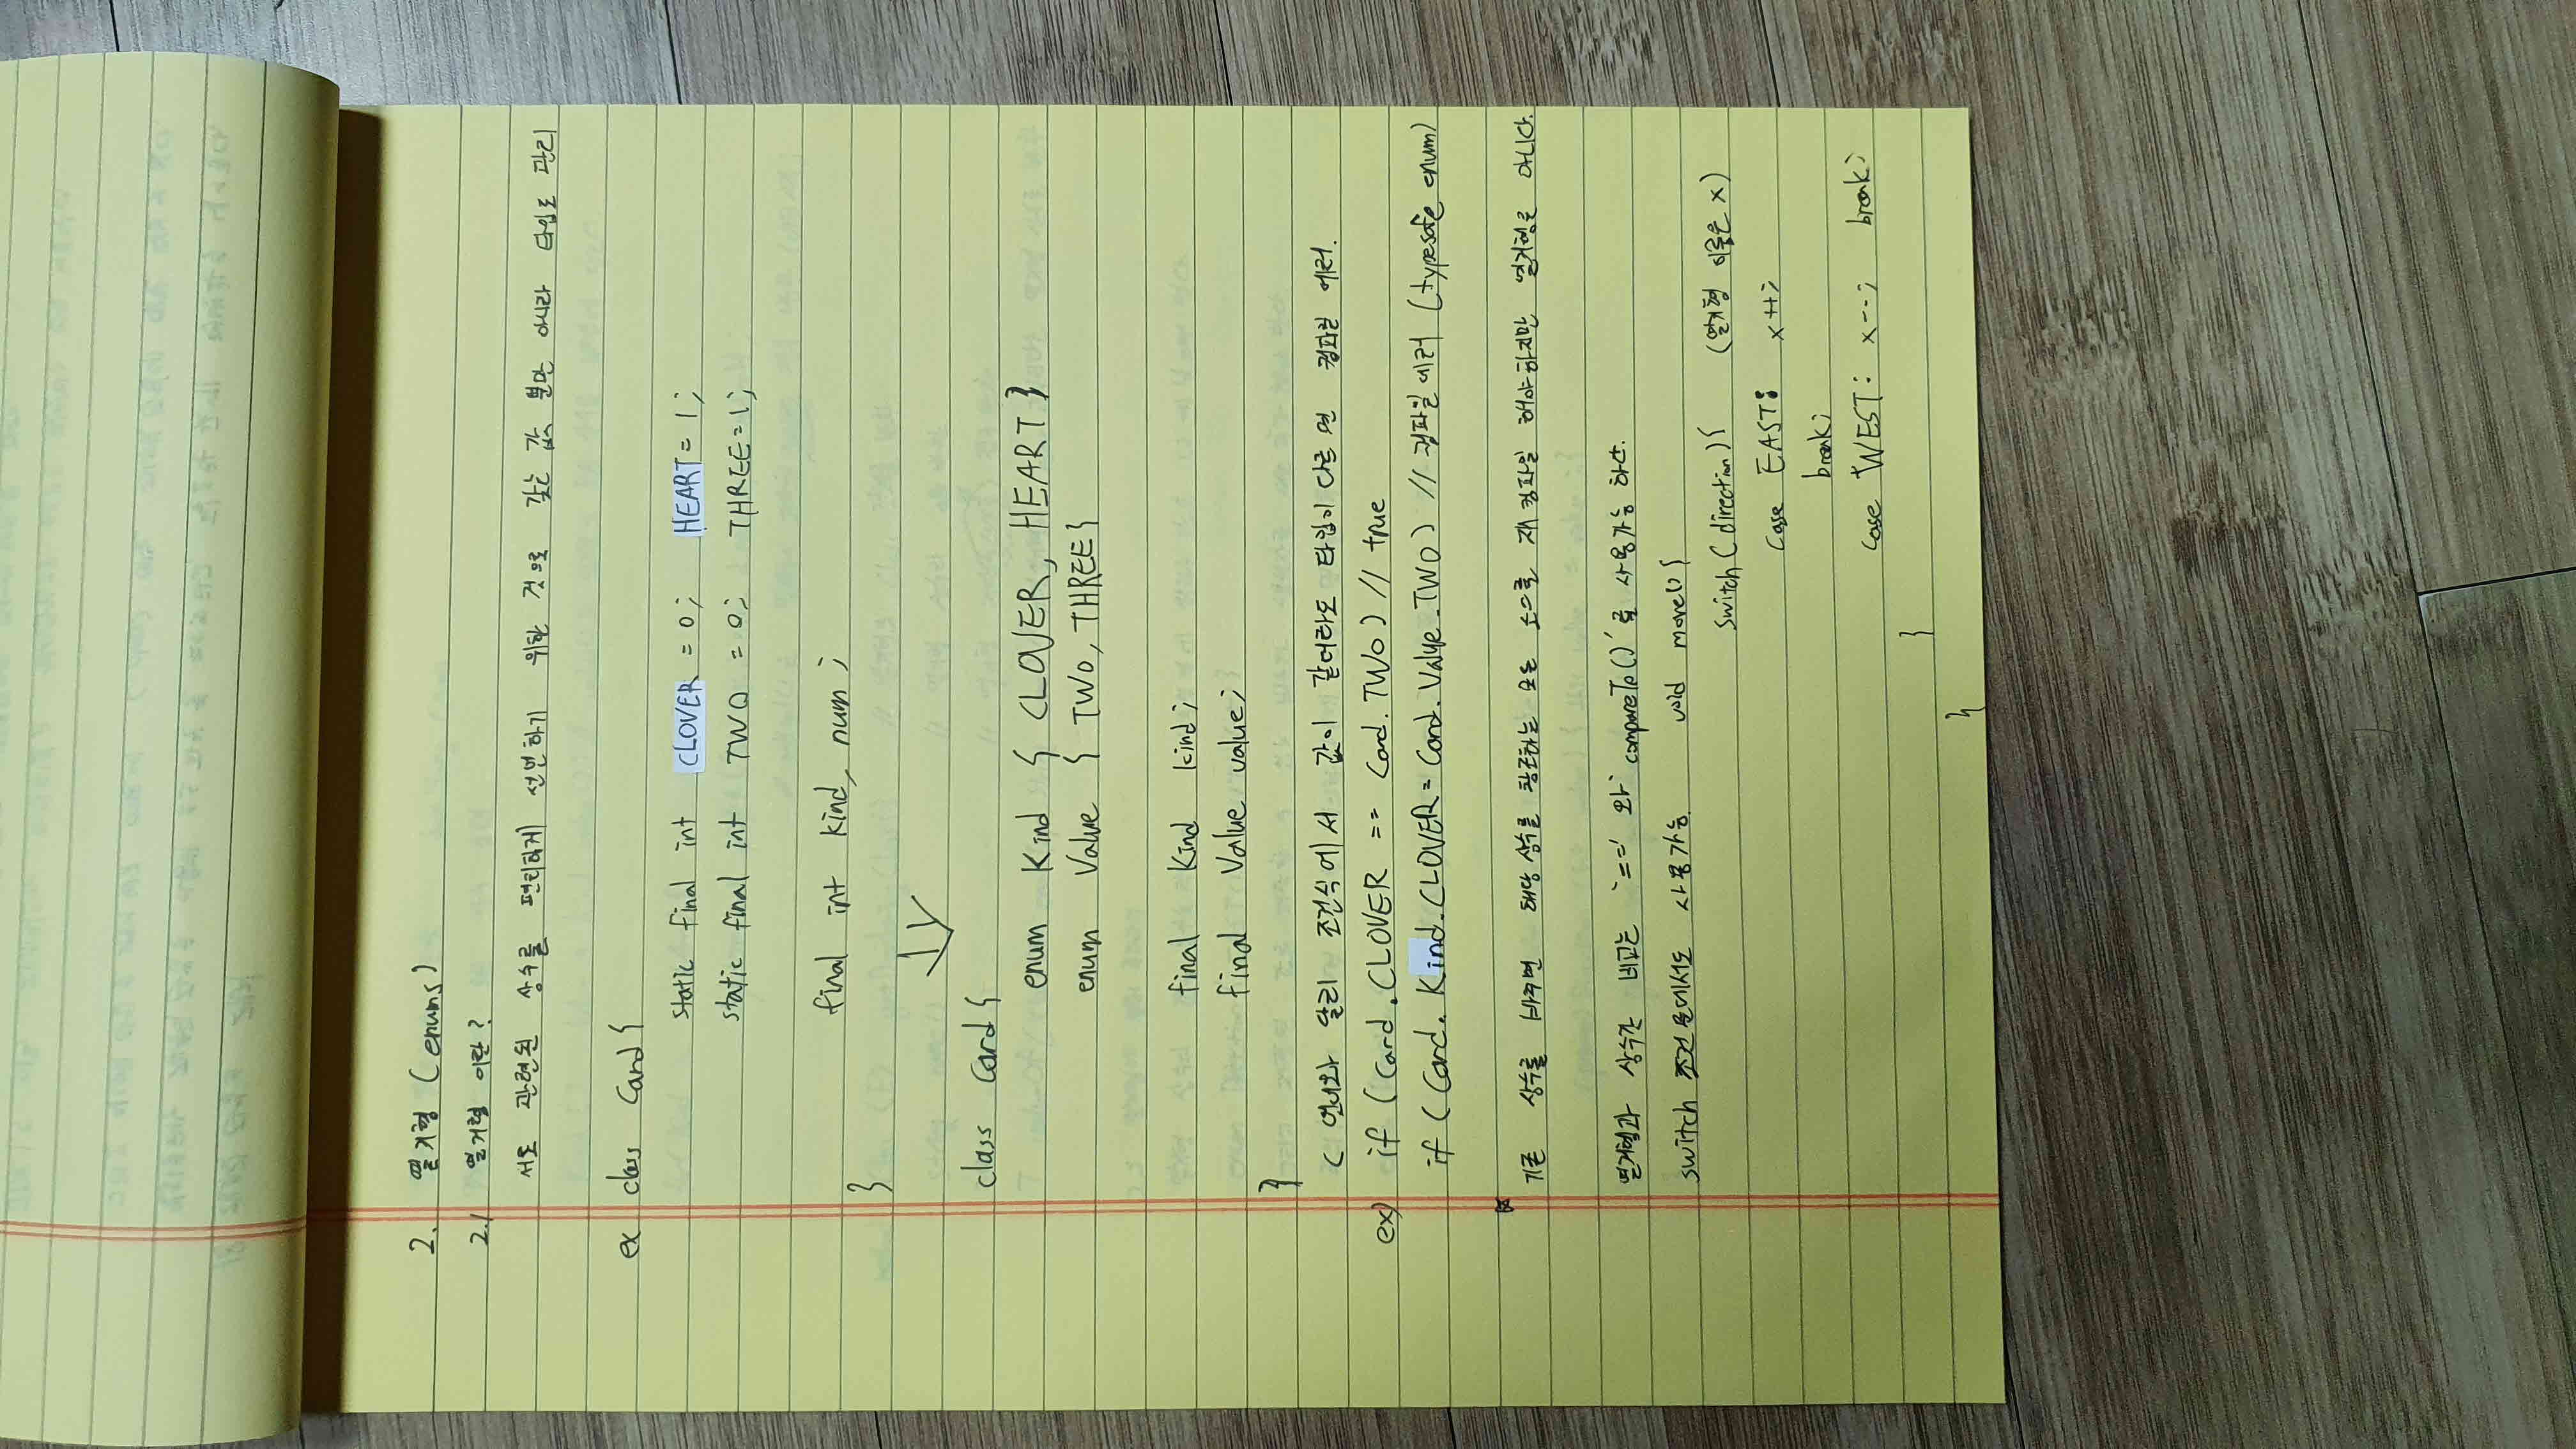 2. 열거형 (enums)
2.1 열거형 이란?
서로 관련된 상수를 편리하게 선언하기 위한 것으로 갖는 값 뿐만 아니라 타입도 관리
ex class Card {
static final int CLOVER = 0; HEART = 1;
static final int TWO = 0; THREE = 1;
final int kind, num;
}
class Card {
enum Kind { CLOVER, HEART }
enum Value { TWO, THREE }
final Kind kind;
final Value value;
}
C 언어와 달리 조건식에서 값이 같더라도 타입이 다르면 컴파일 에러.
ex) if (Card.CLOVER == Card.TWO) // true
if (Card.Kind.CLOVER = Card.Value.TWO) // 컴파일 에러 (typesafe enum)
기존 상수를 바꾸면 해당 상수를 참조하는 모든 소스를 재 컴파일 해야하지만 열거형은 아니다.
열거형과 상수간 비교는 '==' 와 'compareTo()' 로 사용가능 하다.
switch 조건문에서도 사용가능 void move() {
switch (direction) { (열거형 이름은 x)
case EAST: x++;
break;
case WEST: x--; break;
}
}